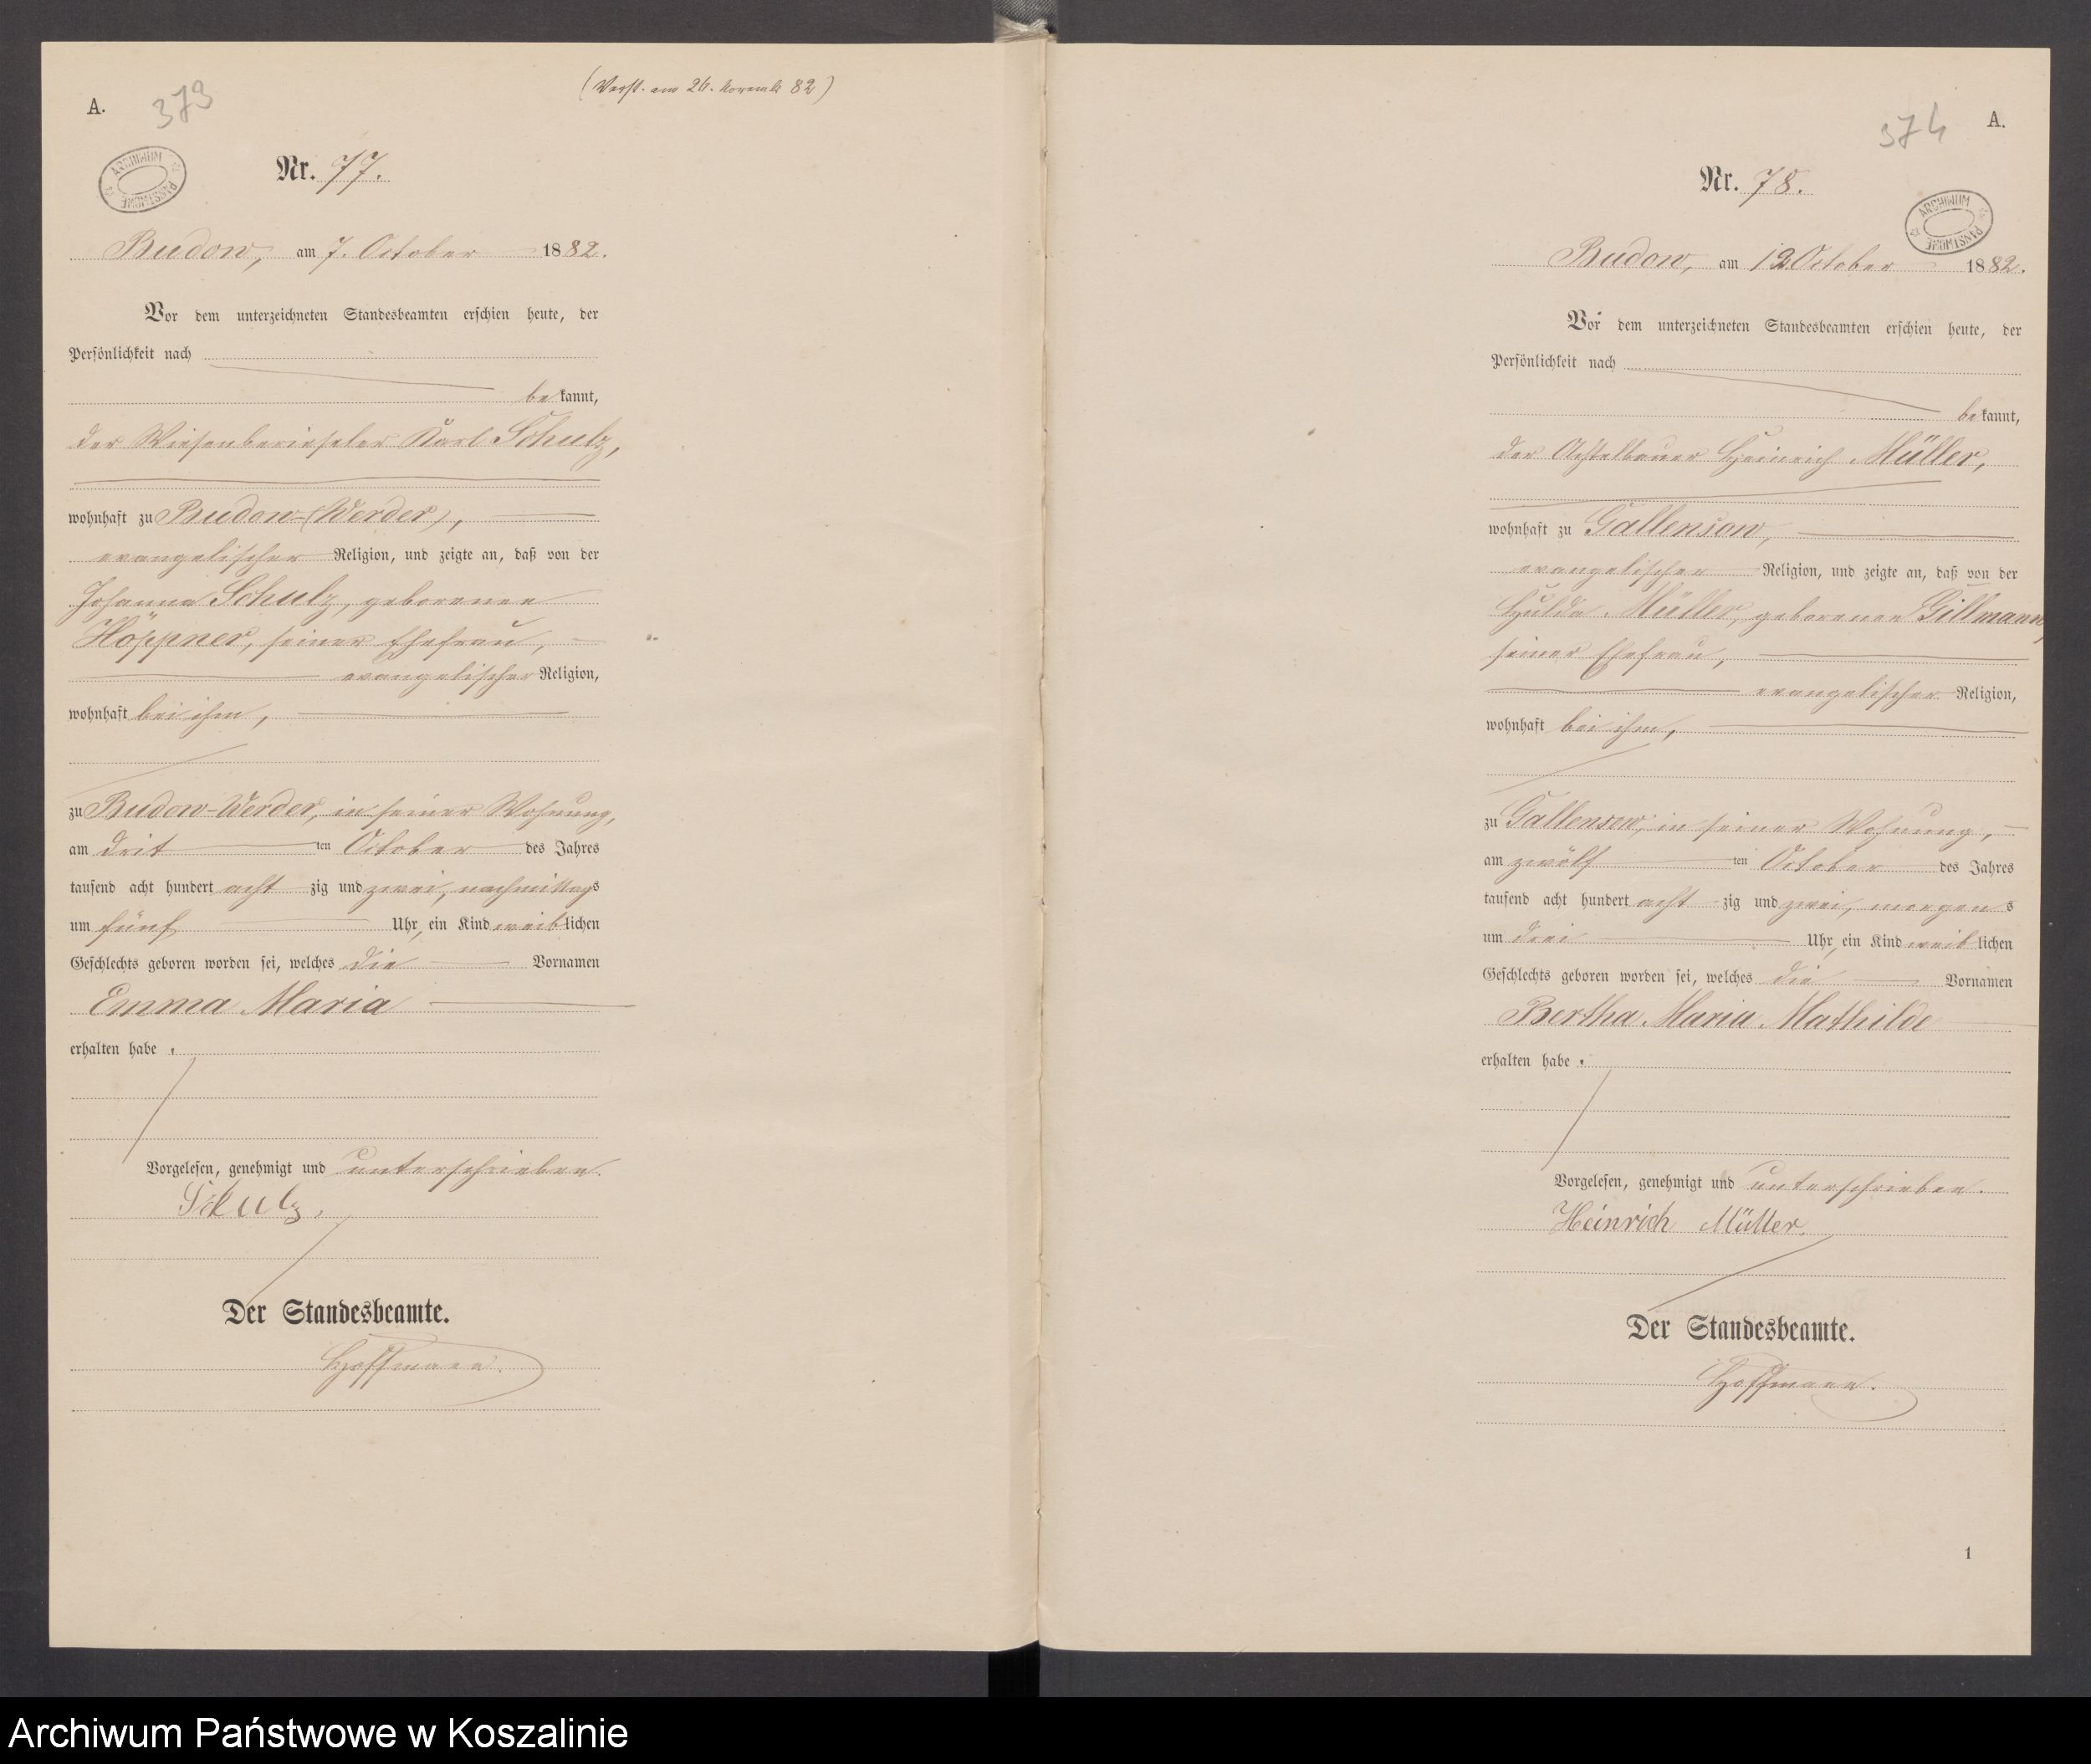 A.
379
(Verst. am 26. Novemb 82)
ARCHIWUM PAŃSTWOWE
Nr. 77.
Budow, am 7. October 1882.
Vor dem unterzeichneten Standesbeamten erschien heute, der
Persönlichkeit nach
bekannt,
der Wiesenberieseler Karl Schulz,
wohnhaft zu Budow-(Werder),
evangelischer Religion, und zeigte an, daß von der
Johanna Schulz, geborenen
Höppner, seiner Ehefrau,
evangelischer Religion,
wohnhaft bei ihm,
zu Budow-Werder, in seiner Wohnung,
am drit ten October des Jahres
tausend acht hundert acht zig und zwei, nachmittags
um fünf Uhr, ein Kind weiblichen
Geschlechts geboren worden sei, welches die Vornamen
Emma Maria
erhalten habe.
Vorgelesen, genehmigt und unterschrieben.
Schulz.
Der Standesbeamte.
Hoffmann.
374
A.
Nr. 78.
ARCHIWUM PAŃSTWOWE
Budow, am 12. October 1882.
Vor dem unterzeichneten Standesbeamten erschien heute, der
Persönlichkeit nach
bekannt,
der Achtelbauer Heinrich Müller,
wohnhaft zu Gallensow,
evangelischer Religion, und zeigte an, daß von der
Hulda Müller, geborenen Gillmann,
seiner Ehefrau,
evangelischer Religion,
wohnhaft bei ihm,
zu Gallensow, in seiner Wohnung,
am zwölf ten October des Jahres
tausend acht hundert acht zig und zwei, morgens
um drei Uhr, ein Kind weiblichen
Geschlechts geboren worden sei, welches die Vornamen
Bertha Maria Mathilde
erhalten habe.
Vorgelesen, genehmigt und unterschrieben.
Heinrich Müller.
Der Standesbeamte.
Hoffmann.
1
Archiwum Państwowe w Koszalinie